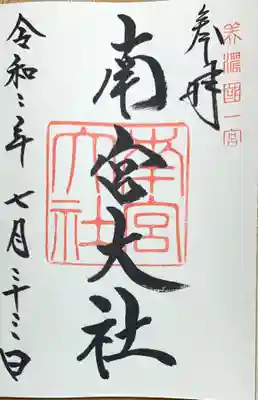 美濃國一宮
奉拝
南宮大社
南宮
大社
令和二年七月二十三日